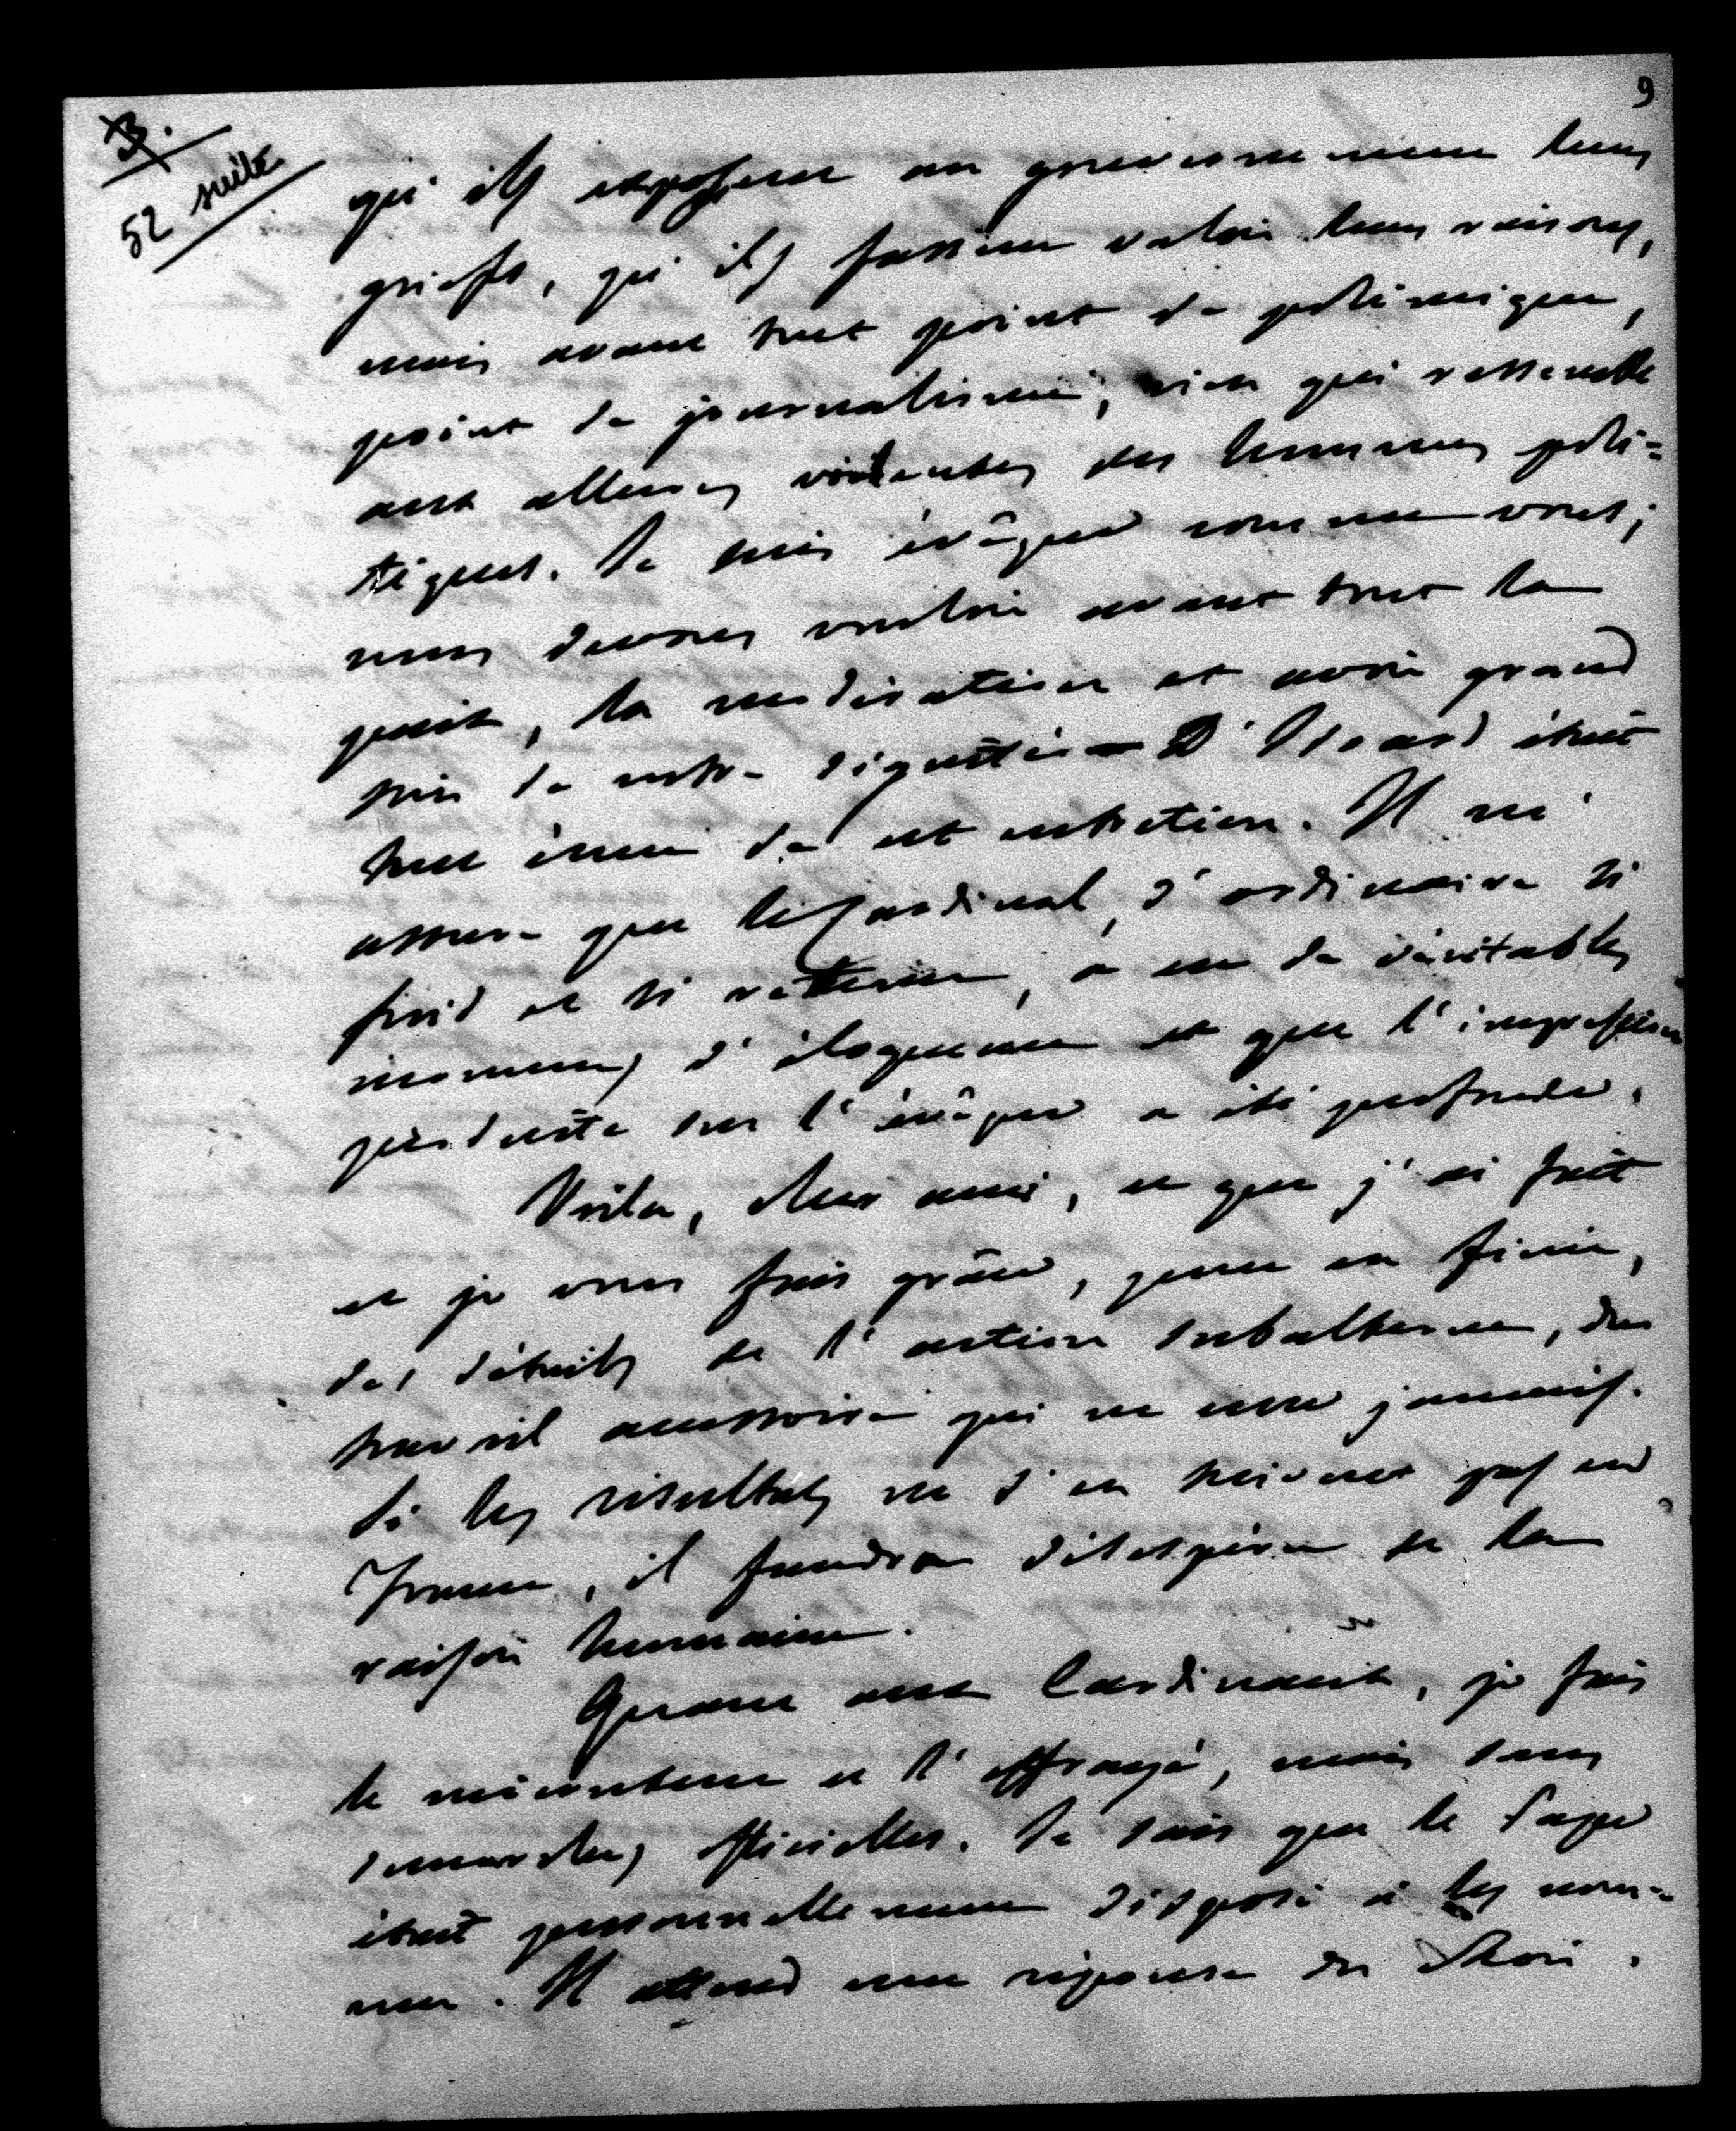 9
3.
52 suite
qu'ils exposent au gouvernement leurs
griefs, qu'ils fassent valoir leurs raisons,
mais avant tout point de polémique,
point de journalisme, rien qui ressemble
aux allures violentes des hommes poli=
tiques. Je suis évêque comme vous;
nous devons vouloir avant tout la
paix, la modération et avoir grand
soin de notre dignité. D'Isoard était
tout ému de cet entretien. Il m'
assure que le Cardinal, d'ordinaire si
froid et si retenu, a eu de véritables
moments d'éloquence et que l'impression
produite sur l'évêque a été profonde.
Voila, cher ami, ce que j'ai fait
et je vous fais grâce, pour en finir,
des détails de l'action subalterne, du
travail accessoire qui ne cesse jamais.
Si les résultats ne s'en suivent pas en
France, il faudra désespérer de la
raison humaine.
Quant aux Cardinaux, je fais
le mécontent et l'effrayé, mais sans
demarches officielles. Je sais que le Pape
était personnellement disposé à les nom=
mer. Il attend une réponse du